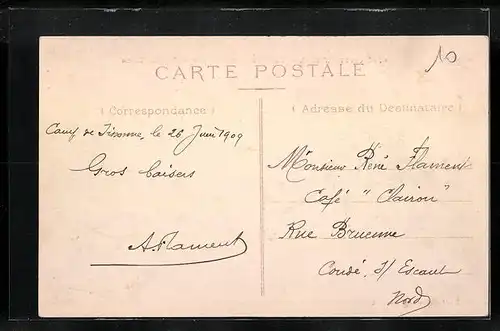 10
CARTE POSTALE
( Correspondance )
( Adresse du Destinataire )
Camp de Sissonne, le 26 Juin 1909
Gros baisers
A. Flament
Monsieur René Flament
Café "Clairon"
Rue Bruenne
Condé s/ Escaut
Nord